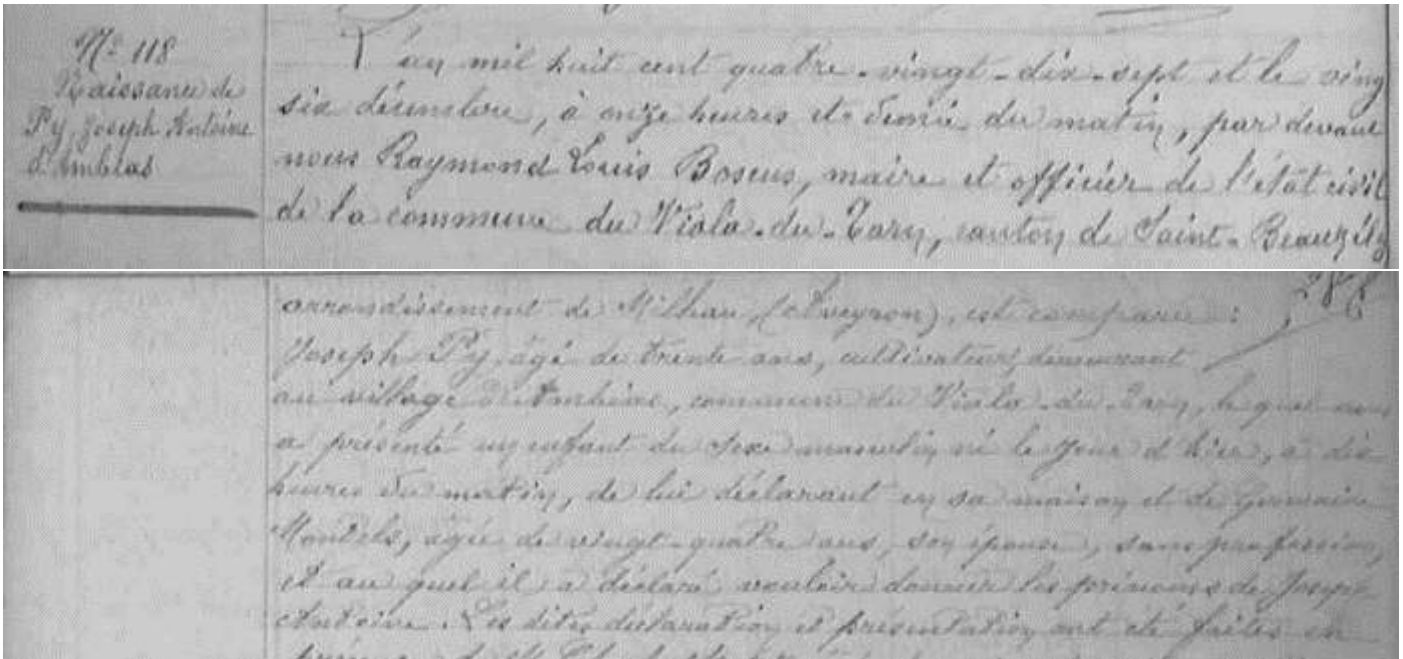 Nº 118
Naissance de
Py, Joseph Antoine
d'Ambias
L'an mil huit cent quatre-vingt-dix-sept et le vingt
six décembre, à onze heures et demie du matin, par devant
nous Raymond Louis Boscus, maire et officier de l'état civil
de la commune du Viala-du-Tarn, canton de Saint-Beauzély
arrondissement de Milhau, (Aveyron), est comparu :
Joseph Py, âgé de trente ans, cultivateur, demeurant
au village d' commune du Viala-du-Tarn, le quel nous
a présenté un enfant du sexe masculin né le jour d'hier, à dix
heures du matin, de lui déclarant en sa maison et de Germaine
âgée de vingt-quatre ans, son épouse, sans profession,
et au quel il a déclaré vouloir donner les prénoms de Joseph
Antoine. Les dites déclaration et présentation ont été faites en